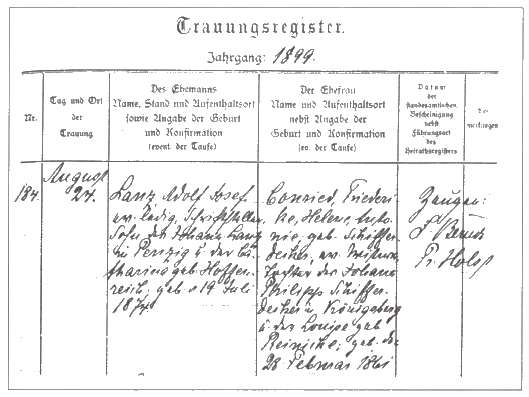 Trauungsregister.
Jahrgang: 1899.
Nr.
Tag und Ort
der
Trauung
Des Ehemanns
Name, Stand und Aufenthaltsort
sowie Angabe der Geburt
und Konfirmation
(event. der Taufe)
Der Ehefrau
Name und Aufenthaltsort
nebst Angabe der
Geburt und Konfirmation
(ev. der Taufe)
Datum
der
standesamtlichen
Bescheinigung
nebst
Führungsort
des
Heirathsregisters
Be-
merkungen
184.
August
24.
Lanz, Adolf Josef
ev. ledig, Schriftsteller
Sohn des Johann Lanz
in Penzig u. der Ka-
tharina geb Hoffen-
reich; geb. 19 Juli
1874.
Conried, Friederi-
ke, Helene, Anto-
nie, geb. Schiffen-
decker, ev.
Tochter des Johann
Philipp Schiffen-
decker in Königsberg
u. der Louise geb
Reinicke; geb. den
28 Februar 1861
Zeugen: